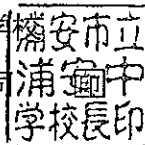 安市立
浦安印中
学校長印